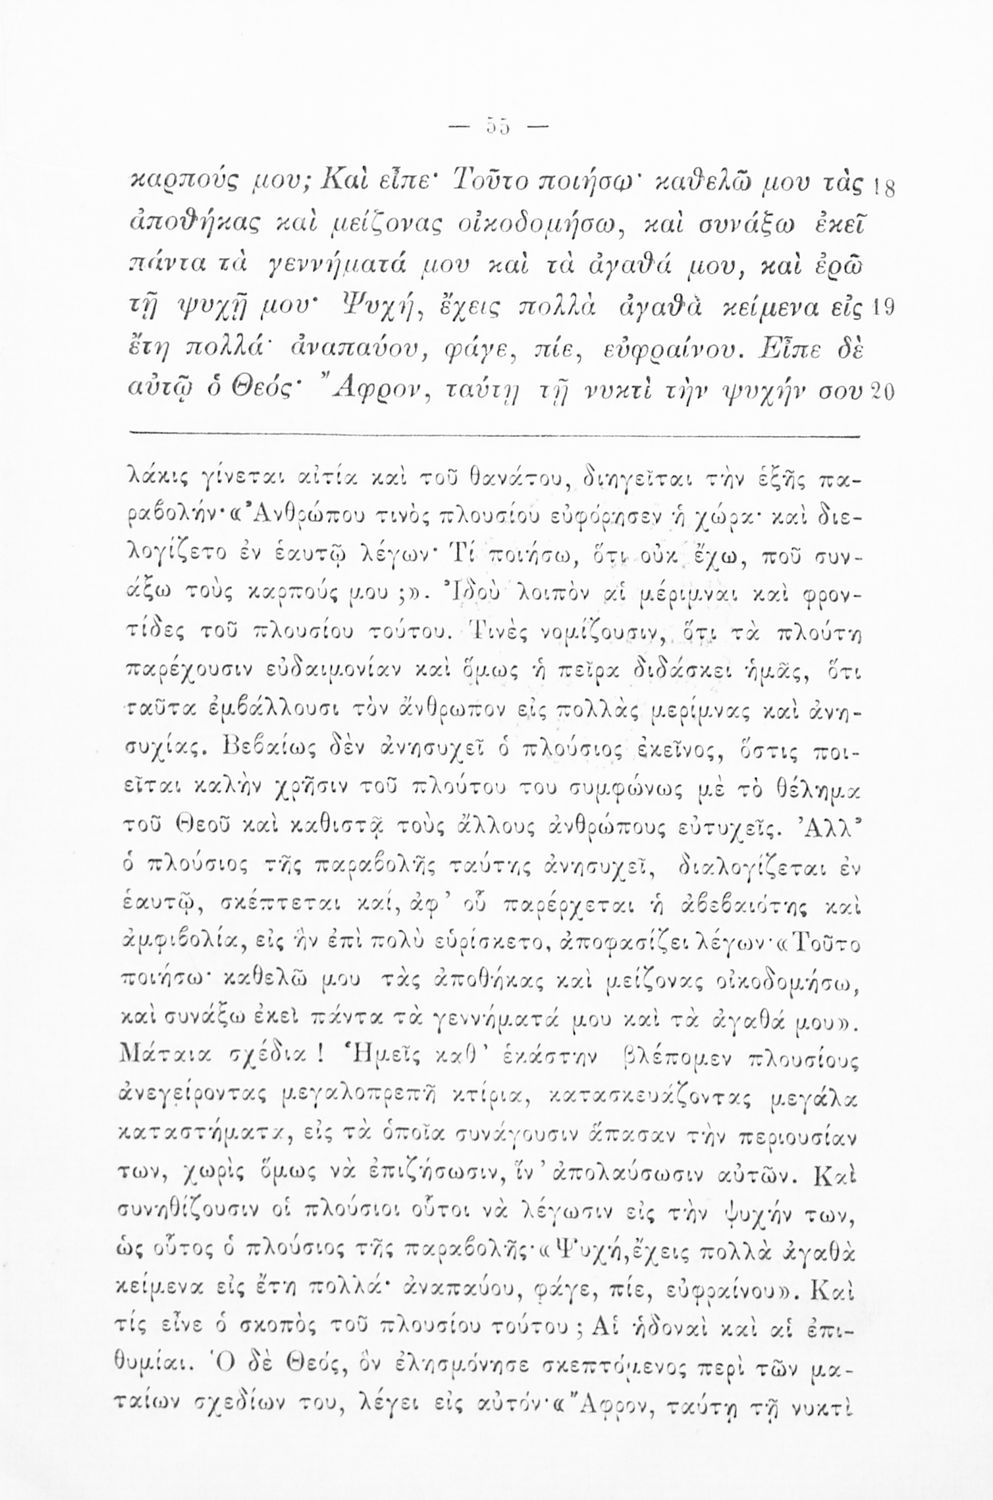 — 55 —
καρπούς μου; Καὶ εἶπε· Τοῦτο ποιήσω· καθελῶ μου τὰς 18
ἀποθήκας καὶ μείζονας οἰκοδομήσω, καὶ συνάξω ἐκεῖ
πάντα τὰ γεννήματά μου καὶ τὰ ἀγαθά μου, καὶ ἐρῶ
τῇ ψυχῇ μου· Ψυχή, ἔχεις πολλὰ ἀγαθὰ κείμενα εἰς 19
ἔτη πολλά· ἀναπαύου, φάγε, πίε, εὐφραίνου. Εἶπε δὲ
αὐτῷ ὁ Θεός· Ἄφρον, ταύτῃ τῇ νυκτὶ τὴν ψυχήν σου 20
λάκις γίνεται αἰτία καὶ τοῦ θανάτου, διηγεῖται τὴν ἑξῆς πα-
ραβολήν· «Ἀνθρώπου τινὸς πλουσίου εὐφόρησεν ἡ χώρα· καὶ διε-
λογίζετο ἐν ἑαυτῷ λέγων· Τί ποιήσω, ὅτι οὐκ ἔχω, ποῦ συν-
άξω τοὺς καρπούς μου ;». Ἰδοὺ λοιπὸν αἱ μέριμναι καὶ φρον-
τίδες τοῦ πλουσίου τούτου. Τινὲς νομίζουσιν, ὅτι τὰ πλούτη
παρέχουσιν εὐδαιμονίαν καὶ ὅμως ἡ πεῖρα διδάσκει ἡμᾶς, ὅτι
ταῦτα ἐμβάλλουσι τὸν ἄνθρωπον εἰς πολλὰς μερίμνας καὶ ἀνη-
συχίας. Βεβαίως δὲν ἀνησυχεῖ ὁ πλούσιος ἐκεῖνος, ὅστις ποι-
εῖται καλὴν χρῆσιν τοῦ πλούτου του συμφώνως μὲ τὸ θέλημα
τοῦ Θεοῦ καὶ καθιστᾷ τοὺς ἄλλους ἀνθρώπους εὐτυχεῖς. Ἀλλ'
ὁ πλούσιος τῆς παραβολῆς ταύτης ἀνησυχεῖ, διαλογίζεται ἐν
ἑαυτῷ, σκέπτεται καί, ἀφ' οὗ παρέρχεται ἡ ἀβεβαιότης καὶ
ἀμφιβολία, εἰς ἣν ἐπὶ πολὺ εὑρίσκετο, ἀποφασίζει λέγων· «Τοῦτο
ποιήσω· καθελῶ μου τὰς ἀποθήκας καὶ μείζονας οἰκοδομήσω,
καὶ συνάξω ἐκεῖ πάντα τὰ γεννήματά μου καὶ τὰ ἀγαθά μου».
Μάταια σχέδια ! Ἡμεῖς καθ' ἑκάστην βλέπομεν πλουσίους
ἀνεγείροντας μεγαλοπρεπῆ κτίρια, κατασκευάζοντας μεγάλα
καταστήματα, εἰς τὰ ὁποῖα συνάγουσιν ἅπασαν τὴν περιουσίαν
των, χωρὶς ὅμως νὰ ἐπιζήσωσιν, ἵν' ἀπολαύσωσιν αὐτῶν. Καὶ
συνηθίζουσιν οἱ πλούσιοι οὗτοι νὰ λέγωσιν εἰς τὴν ψυχήν των,
ὡς οὗτος ὁ πλούσιος τῆς παραβολῆς· «Ψυχή, ἔχεις πολλὰ ἀγαθὰ
κείμενα εἰς ἔτη πολλά· ἀναπαύου, φάγε, πίε, εὐφραίνου». Καὶ
τίς εἶνε ὁ σκοπὸς τοῦ πλουσίου τούτου ; Αἱ ἡδοναὶ καὶ αἱ ἐπι-
θυμίαι. Ὁ δὲ Θεός, ὃν ἐλησμόνησε σκεπτόμενος περὶ τῶν μα-
ταίων σχεδίων του, λέγει εἰς αὐτόν· «Ἄφρον, ταύτῃ τῇ νυκτὶ